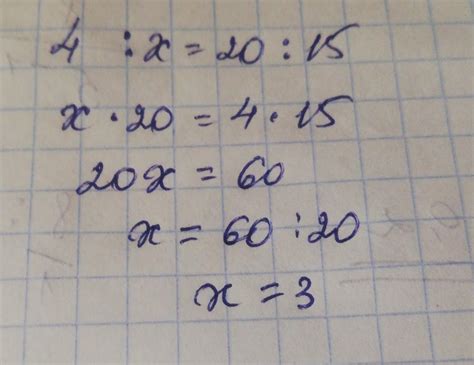 4 : x = 20 : 15
x · 20 = 4 · 15
20x = 60
x = 60 : 20
x = 3